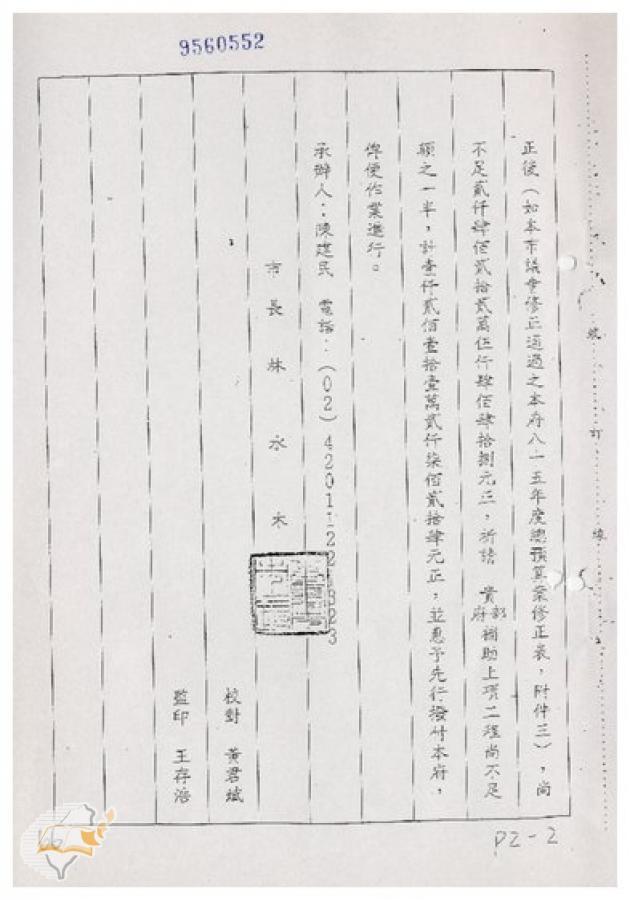 9560552
正後（如本市議會修正通過之本府八十五年度總預算案修正表，附件三），尚
不足貳仟肆佰貳拾貳萬伍仟肆佰肆拾捌元正，祈請　貴部府補助上項工程尚不足
額之一半，計壹仟貳佰壹拾壹萬貳仟柒佰貳拾肆元正，並惠予先行撥付本府，
俾便作業進行。
承辦人：陳建民　電話：（02）4201122
市長　林水木
校對　黃君斌
監印　王存浩
裝
訂
線
P2-2